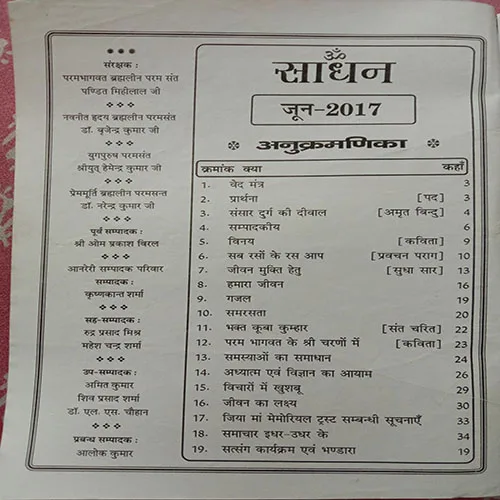 संरक्षक :
परमभागवत ब्रह्मलीन परम संत
पण्डित मिहीलाल जी
नवनीत हृदय ब्रह्मलीन परमसंत
डॉ. बृजेन्द्र कुमार जी
युगपुरुष परमसंत
श्रीयुत् हेमेन्द्र कुमार जी
प्रेममूर्ति ब्रह्मलीन परमसन्त
डॉ. नरेन्द्र कुमार जी
पूर्व सम्पादक :
श्री ओम प्रकाश विरल
आनरेरी सम्पादक परिवार
सम्पादक :
कृष्णकान्त शर्मा
सह-सम्पादक :
रुद्र प्रसाद मिश्र
महेश चन्द्र शर्मा
उप-सम्पादक :
अमित कुमार
शिव प्रसाद शर्मा
डॉ. एल. एस. चौहान
प्रबन्ध सम्पादक :
आलोक कुमार
ॐ
साधन
जून-2017
अनुक्रमणिका
क्रमांक क्या कहाँ
1. वेद मंत्र 3
2. प्रार्थना [पद] 3
3. संसार दुर्ग की दीवाल [अमृत विन्दु] 4
4. सम्पादकीय 6
5. विनय [कविता] 9
6. सब रसों के रस आप [प्रवचन पराग] 10
7. जीवन मुक्ति हेतु [सुधा सार] 13
8. हमारा जीवन 16
9. गजल 19
10. समरसता 20
11. भक्त कूबा कुम्हार [संत चरित] 22
12. परम भागवत के श्री चरणों में [कविता] 23
13. समस्याओं का समाधान 24
14. अध्यात्म एवं विज्ञान का आयाम 26
15. विचारों में खुशबू 29
16. जीवन का लक्ष्य 30
17. जिया मां मेमोरियल ट्रस्ट सम्बन्धी सूचनाएँ 33
18. समाचार इधर-उधर के 34
19. सत्संग कार्यक्रम एवं भण्डारा 19